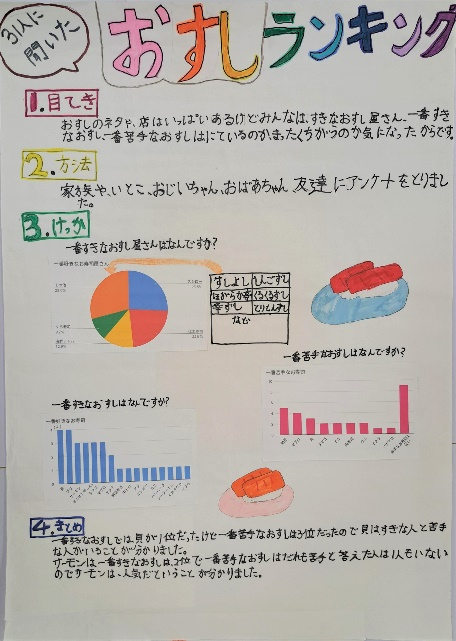 31人に聞いた
おすしランキング
1.目てき
おすしのネタや、店はいっぱいあるけどみんなは、すきなおすし屋さん、一番すき
なおすし、一番苦手なおすしはにているのか、まったくちがうのか気になったからです。
2.方法
家族や、いとこ、おじいちゃん、おばあちゃん、友達にアンケートをとりまし
た。
3.けっか
一番すきなおすし屋さんはなんですか?
すしよし
しんごすし
はがらかすし
くるくるすし
幸ずし
とりとんすし
など
一番苦手なおすしはなんですか?
一番苦手なお寿司
一番すきなおすしはなんですか?
一番好きなお寿司
4.まとめ
一番すきなおすしでは貝が1位だったけど一番苦手なおすしは3位だったので貝はすきな人と苦手
な人がいることが分かりました。
サーモンは一番すきなおすしは、2位で一番苦手なおすしはだれも苦手と答えた人は1人もいない
のでサーモンは、人気だということが分かりました。